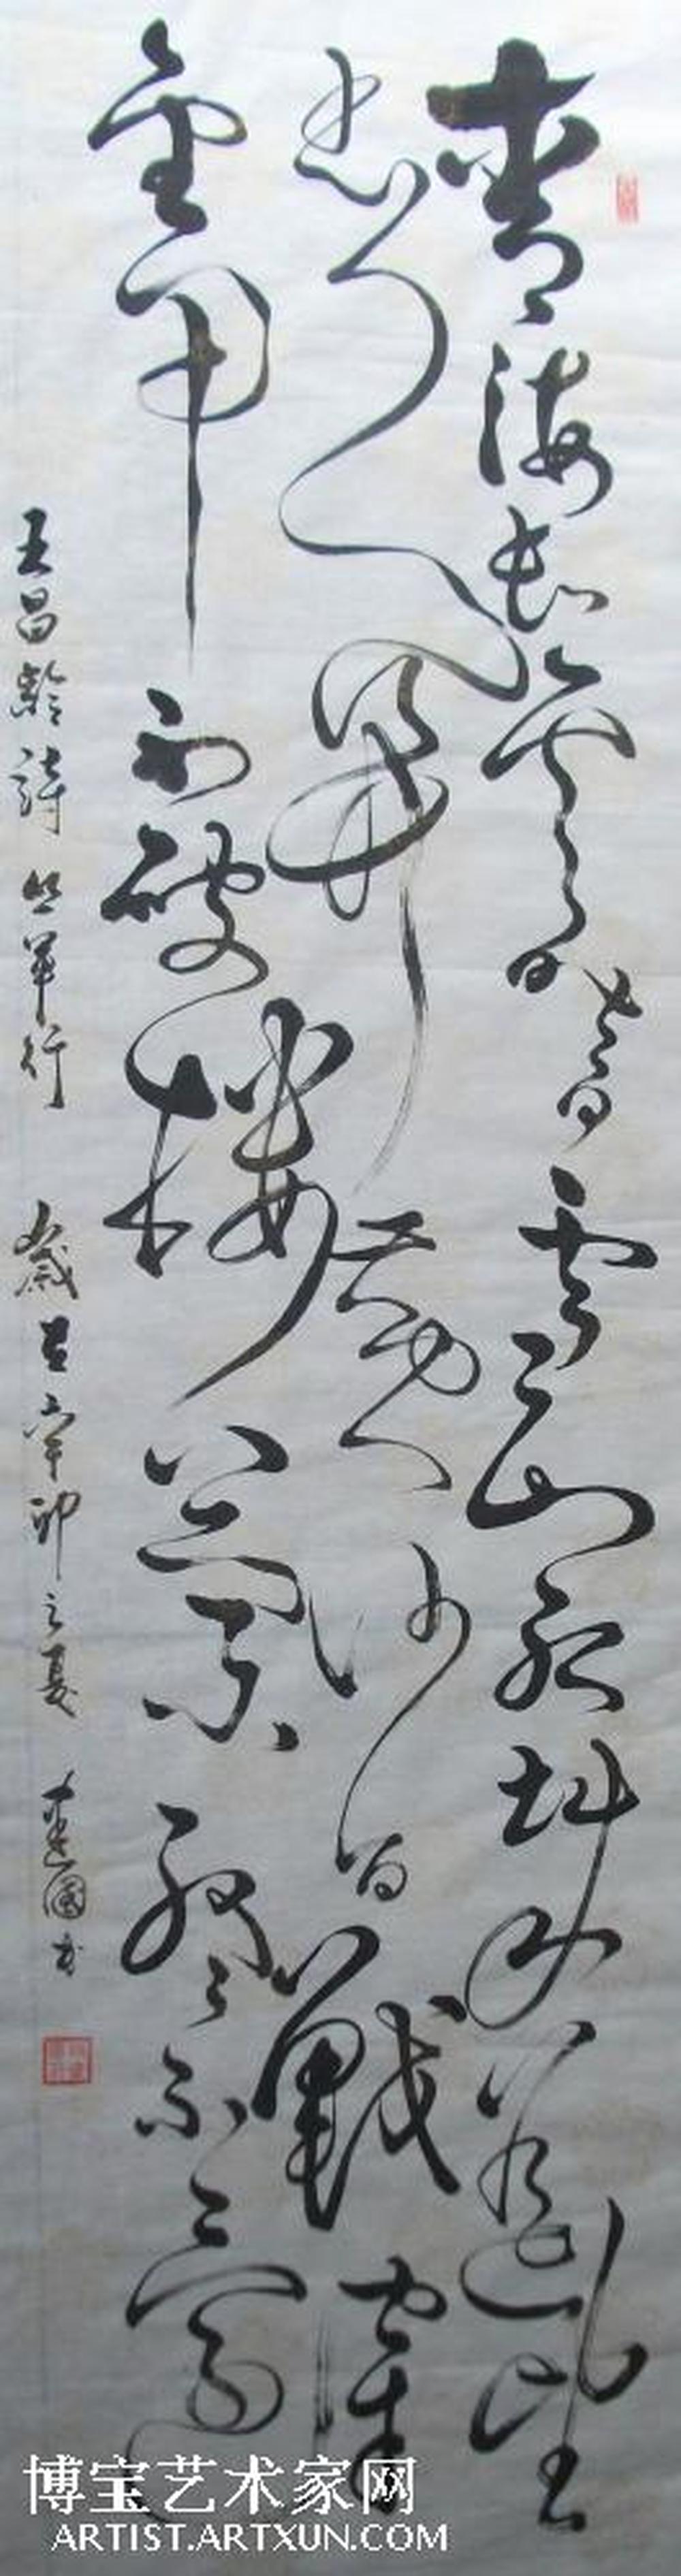 青海長雲暗雪山孤城遙望
玉門關黃沙百戰穿
金甲不破樓蘭終不還
王昌齡詩從軍行 歲在辛卯之夏 建國書
博宝艺术家网
ARTIST.ARTXUN.COM